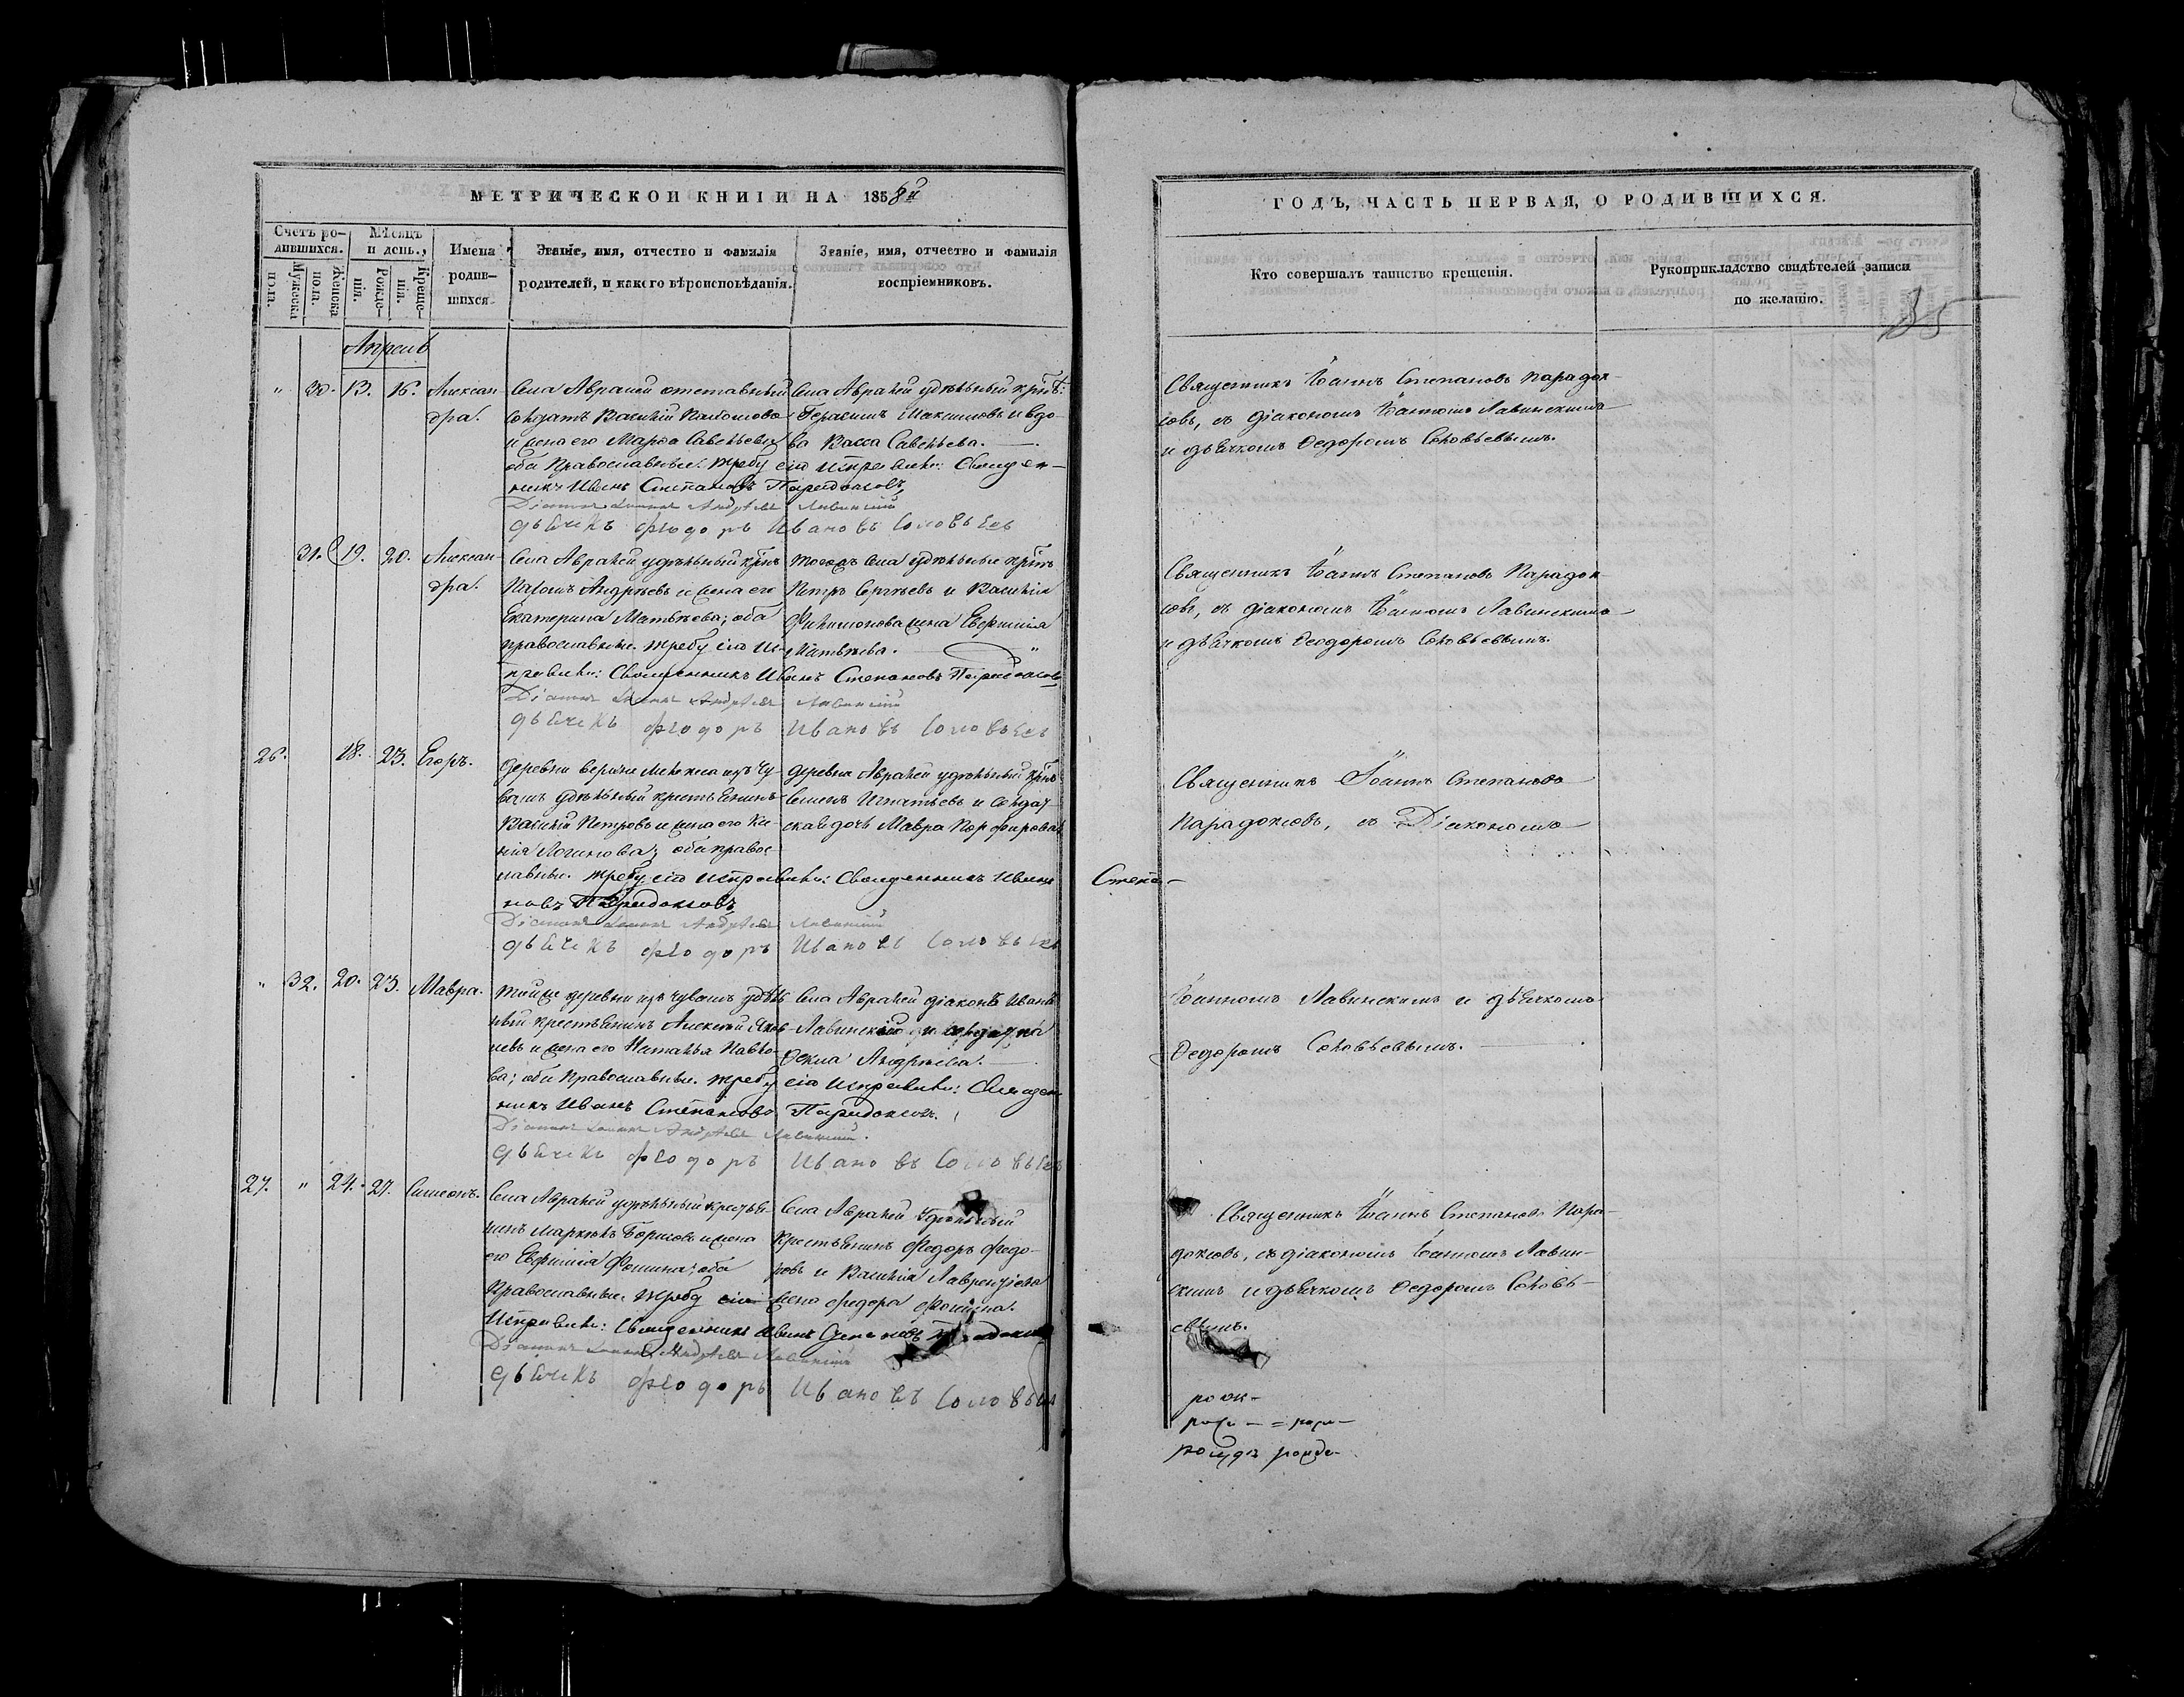 МЕТРИЧЕСКОЙ КНИГИ НА 1858й
Счетъ ро-
дившихся.
Мѣсяцъ
и день.
Мужеска
пола.
Женска
пола.
Рожде-
нія.
Креще-
нія.
Имена
родив-
шихся
Званіе, имя, отчество и фамилія
родителей, и какого вѣроисповѣданія.
Званіе, имя, отчество и фамилія
воспріемниковъ.
Апрель
" 30. 13. 16. Алексан-
дра.
Села Авралей отставный
Солдатъ Василій
и жена его Марѳа Савельева
оба Православные. Требу сію исправили: Священ-
никъ Иванъ Степановъ Парадоксовъ
Діаконъ Іоаннъ Андреевъ Лавинскій
дьячекъ Фѣодоръ Ивановъ Соловьевъ
Села Авралей удѣльный крѣст:
Герасимъ Максимовъ и вдо-
ва Васса Савельева.
31. 19. 20. Алексан-
дра.
Села Авралей удѣльный
Андрѣевъ и жена его
Екатерина Матвѣева; оба
православные. Требу сію ис-
правили: Священникъ Иванъ Степановъ Парадоксовъ
Діаконъ Іоаннъ Андреевъ Лавинскій
дьячекъ Фѣодоръ Ивановъ Соловьевъ
Тогожъ села удѣльные
Петръ Сергѣевъ и Василія
Филимонова жена Евфимія
Матвѣева. "
26. 18. 23. Егоръ.
деревни изъ Чу-
вашъ удѣльный крестьянинъ
Василій Петровъ и жена его Ксе-
нія Логинова; оба правос-
лавные. Требу сію исправили: Священникъ Иванъ Степа-
новъ Парадоксовъ
Діаконъ Іоаннъ Андреевъ Лавинскій
дьячекъ Фѣодоръ Ивановъ Соловьевъ
деревни Авралей удѣльный
Семенъ Игнатьевъ и Солдат-
ская дочь Мавра
" 32. 20. 23. Мавра.
Той же деревни изъ чувашъ удѣль
ный крестьянинъ Алексей Яков-
левъ и жена его Наталья Павло-
ва; оба Православные. Требу сію исправили: Священ-
никъ Иванъ Степановъ Парадоксовъ.
Діаконъ Іоаннъ Андреевъ Лавинскій.
дьячекъ Фѣодоръ Ивановъ Соловьевъ
Села Авралей діаконъ Иванъ
Лавинскій и солдатка
Ѳекла Андрѣева.
27. " 24. 27. Симеонъ.
Села Авралей удѣльный крестья-
нинъ Маркелъ Борисовъ и жена
его Евфимія Фомина; оба
Православные. Требу сію
Исправили: Священникъ Иванъ Степановъ
Діаконъ Іоаннъ Андреевъ Лавинскій
дьячекъ Фѣодоръ Ивановъ Соловьевъ
Села Авралей Удѣльный
Крестьянинъ Федоръ Федо-
ровъ и Василія Лаврентьева
жена Федора Фомина.
ГОДЪ, ЧАСТЬ ПЕРВАЯ, О РОДИВШИХСЯ.
Кто совершалъ таинство крещенія.
Рукоприкладство свидѣтелей записи
по желанію.
35
Священникъ Іоаннъ Степановъ Парадок-
совъ, съ діакономъ Іоанномъ Лавинскимъ
и дьячкомъ Ѳедоромъ Соловьевымъ.
Священникъ Іоаннъ Степановъ Парадок
совъ, съ діакономъ Іоанномъ Лавинскимъ
и дьячкомъ Ѳеодоромъ Соловьевымъ.
Священникъ Іоаннъ Степановъ
Парадоксовъ, съ Діакономъ
Іоанномъ Лавинскимъ и дьячкомъ
Ѳедоромъ Соловьевымъ.
Священникъ Іоаннъ Степановъ Пара-
доксовъ, съ діакономъ Іоанномъ Лавин-
скимъ и дьячкомъ Ѳедоромъ Соловь-
евымъ.